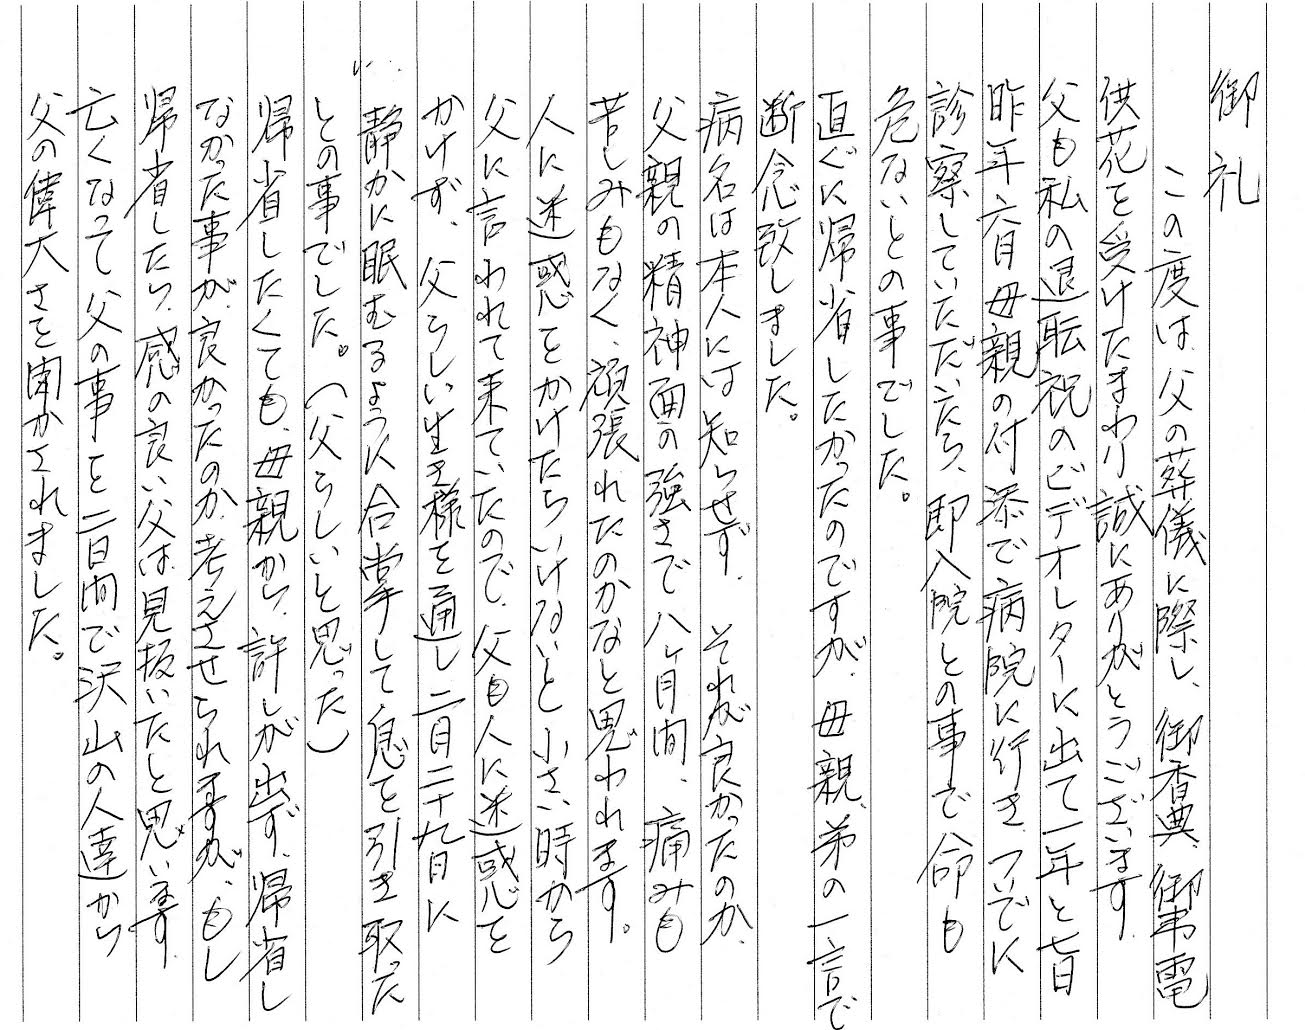 御礼
この度は、父の葬儀に際し、御香典、御弔電
供花を受けたまわり誠にありがとうございます。
父も私の退転祝のビデオレターに出て一年と七日
昨年六月母親の付添で病院に行き、ついでに
診察していただいたら、即入院との事で命も
危ないとの事でした。
直ぐに帰省したかったのですが、母親、弟の一言で
断念致しました。
病名は本人には知らせず、それが良かったのか、
父親の精神面の強さで八ヶ月間、痛みも
苦しみもなく、頑張れたのかなと思われます。
人に迷惑をかけたらいけないと小さい時から
父に言われて来ていたので、父も人に迷惑を
かけず、父らしい生き様を通し二月二十九日に
静かに眠むるように合掌して息を引き取った
との事でした。(父らしいと思った)
帰省したくても、母親から、許しが出ず、帰省し
なかった事が、良かったのか、考えさせられますが、もし
帰省したら、感の良い父は、見抜いたと思います。
亡くなって父の事を二日間で沢山の人達から
父の偉大さを聞かされました。